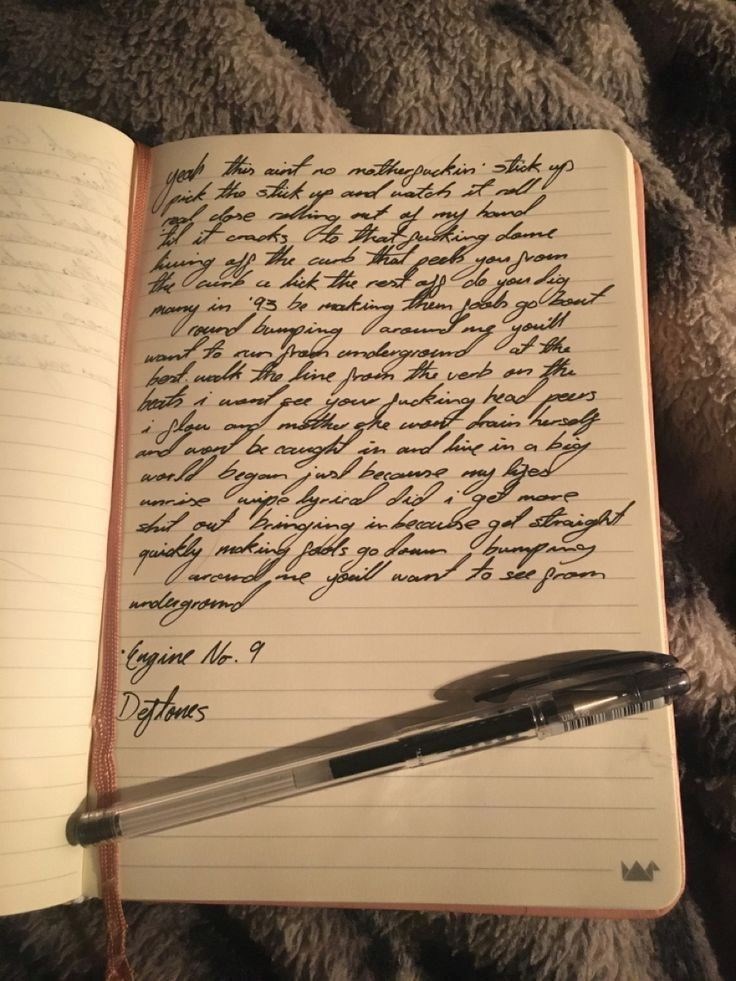 yeah this aint no motherfuckin' stick up
pick the stick up and watch it roll
real close rolling out of my hand
'til it cracks to that fucking dome
living off the curb that peels you from
the curb u lick the rest off do you dig
many in '93 be making them fools go bout
round bumping around me you'll
want to run from underground at the
best walk the line from the verb on the
beats i wont see your fucking head peers
i flow and mother she wont drain herself
and wont be caught in and live in a big
world began just because my lyes
unrise wipe lyrical did i get more
shit out bringing in because get straight
quickly making fools go down bumping
around me you'll want to see from
underground
Engine No. 9
Deftones